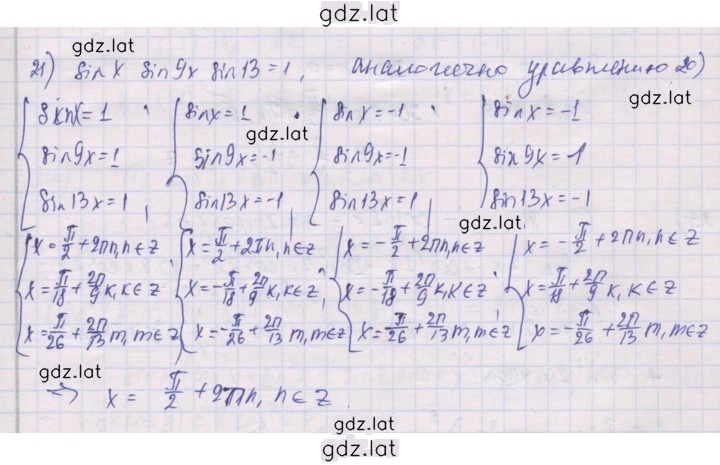 gdz.lat
gdz.lat
21) sin x sin 9x sin 13 = 1, аналогично уравнению 20)
gdz.lat
sin x = 1 sin x = 1 sin x = -1 sin x = -1
gdz.lat
sin 9x = 1 sin 9x = -1 sin 9x = -1 sin 9x = 1
sin 13x = 1, sin 13x = -1, sin 13x = 1, sin 13x = -1
gdz.lat
x = π/2 + 2πn, n ∈ z x = π/2 + 2πn, n ∈ z x = -π/2 + 2πn, n ∈ z x = -π/2 + 2πn, n ∈ z
x = π/18 + 2π/9 k, k ∈ z x = -π/18 + 2π/9 k, k ∈ z x = -π/18 + 2π/9 k, k ∈ z x = π/18 + 2π/9 k, k ∈ z
x = π/26 + 2π/13 m, m ∈ z x = -π/26 + 2π/13 m, m ∈ z x = π/26 + 2π/13 m, m ∈ z x = -π/26 + 2π/13 m, m ∈ z
gdz.lat
=> x = π/2 + 2πn, n ∈ z
gdz.lat
gdz.lat